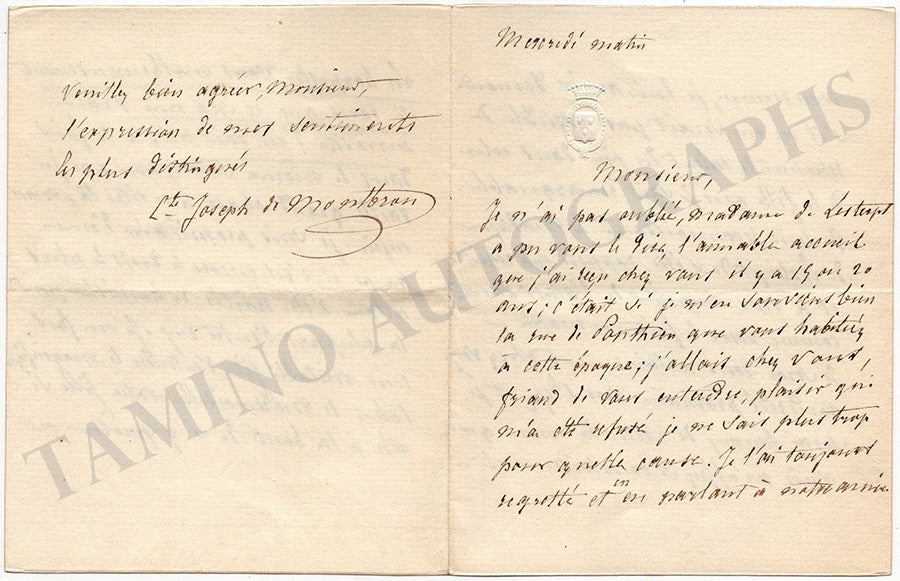 Mercredi matin
Monsieur,
Je n'ai pas oublié, madame de Lesterpt
a pu vous le dire, l'aimable accueil
que j'ai reçu chez vous il y a 15 ou 20
ans; c'était si je m'en souviens bien
la rue de Ponthieu que vous habitiez
à cette époque; j'allais chez vous,
friand de vous entendre, plaisir qui
m'a été refusé je ne sais plus trop
pour quelle cause. Je l'ai toujours
regretté et en parlant à notre amie
Veuillez bien agréer, Monsieur,
l'expression de mes sentiments
les plus distingués
Cte Joseph de Montbron
TAMINO AUTOGRAPHS